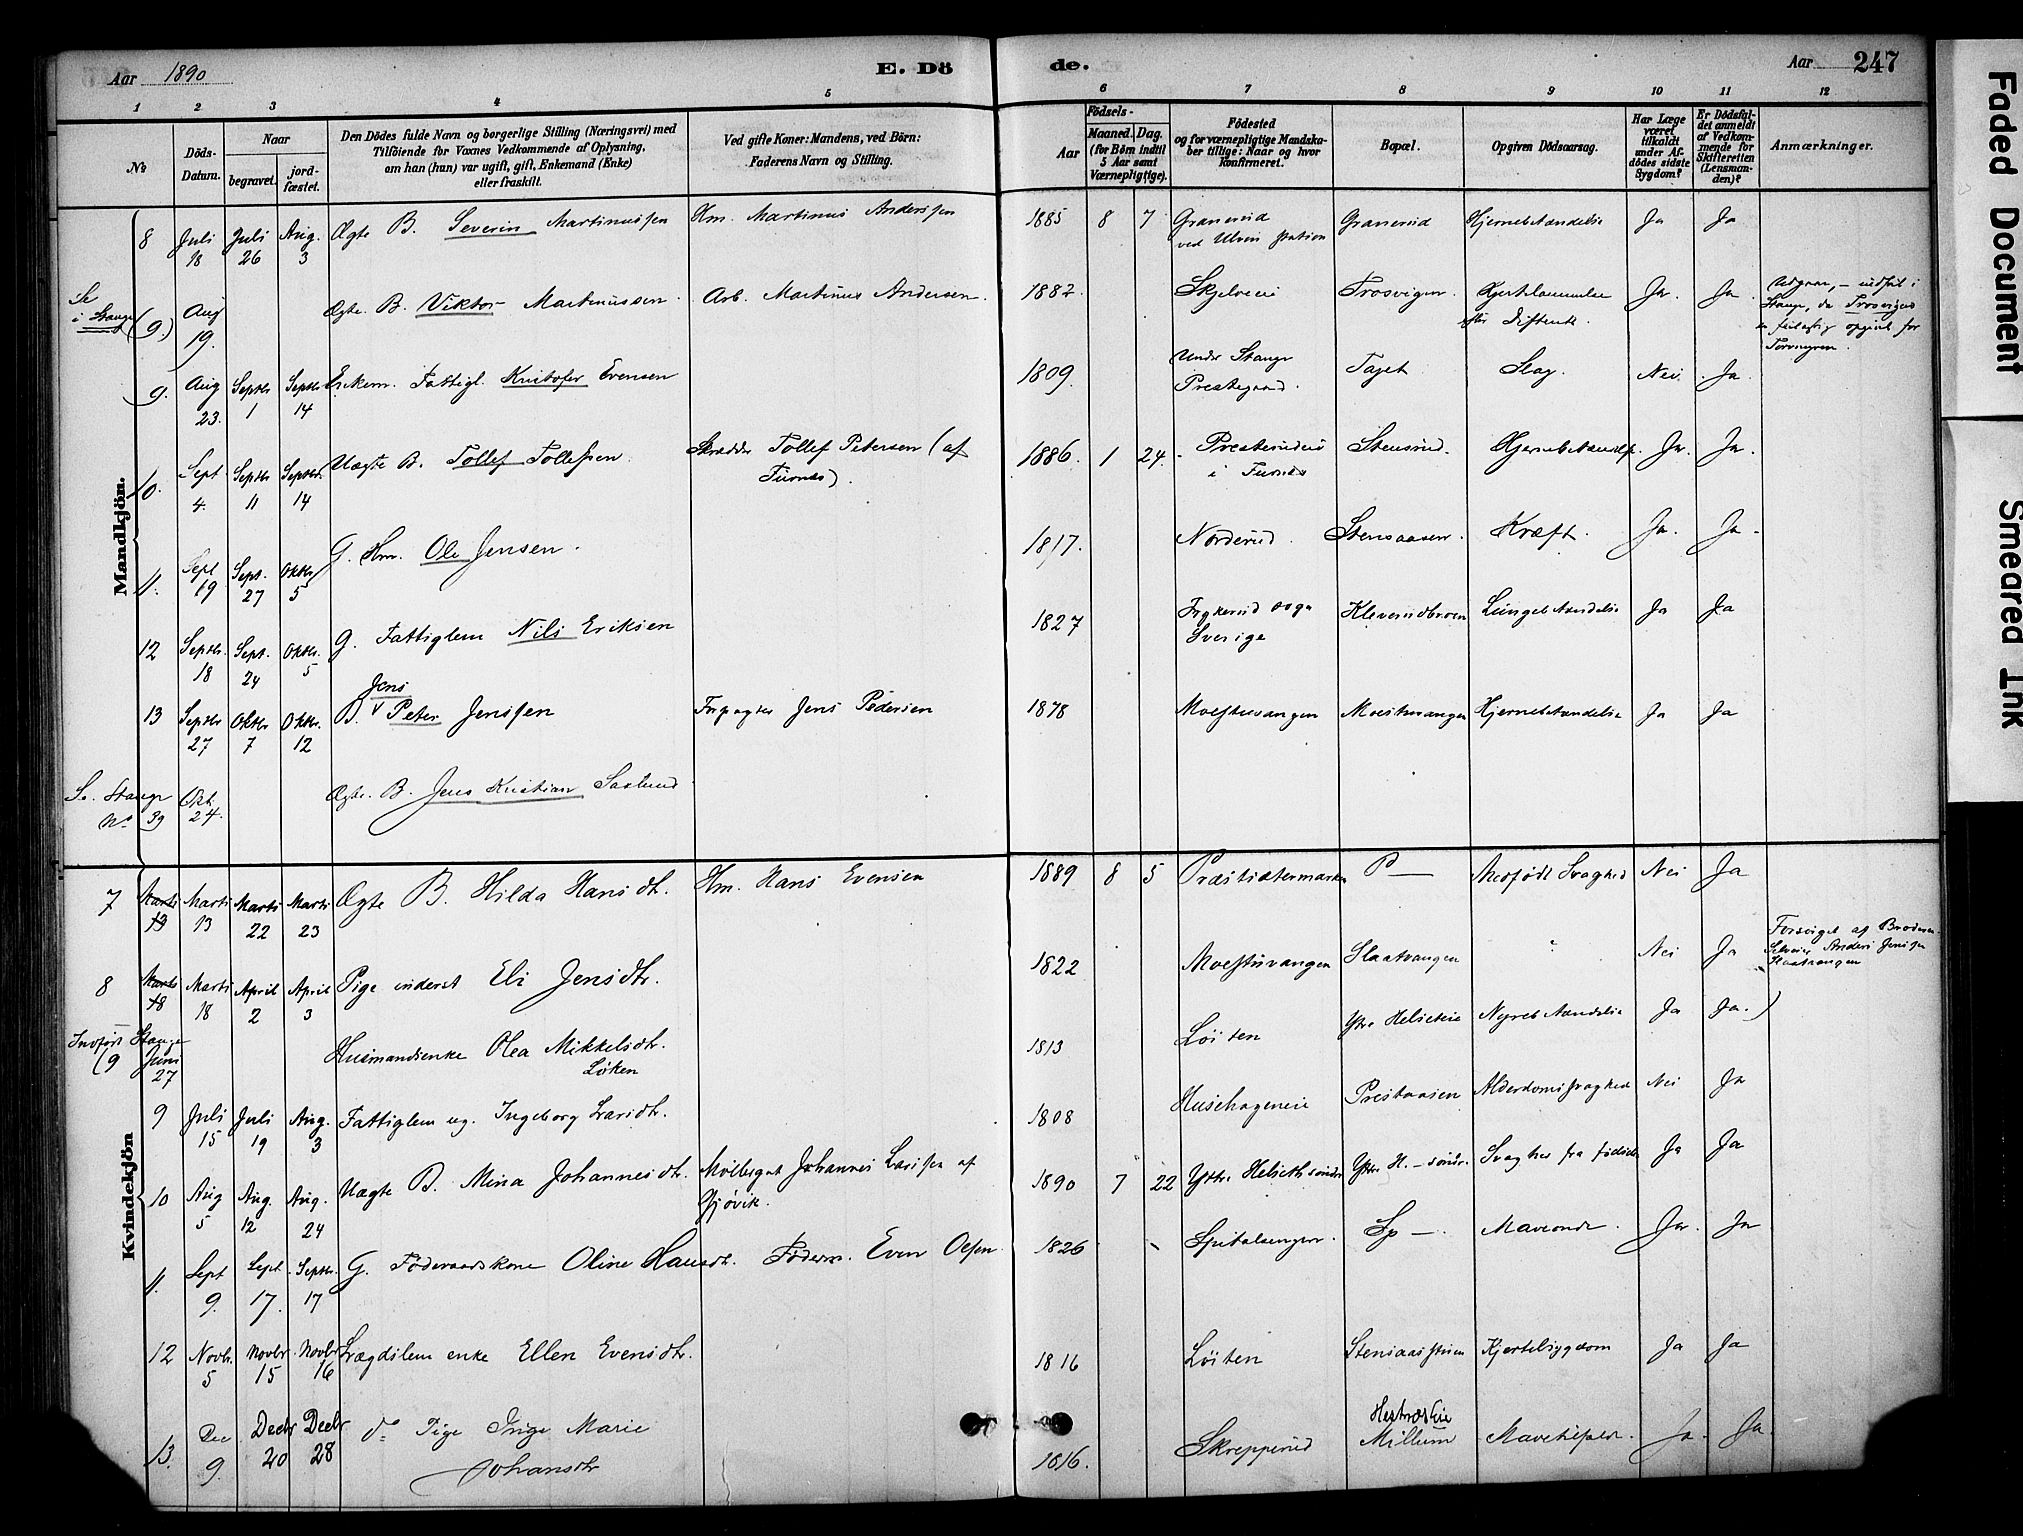 Aar 1890
E. Dö
de.
Aar
247
1 2 3 4 5 6 7 8 9 10 11 12
No
Döds-Datum.
Naar
begravet.
jordfæstet.
Den Dödes fulde Navn og borgerlige Stilling (Næringsvei) med
Tilföiende for Voxnes Vedkommende af Oplysning,
om han (hun) var ugift, gift, Enkemand (Enke)
eller fraskilt.
Ved gifte Koner: Mandens, ved Börn:
Faderens Navn og Stilling.
Födsels-
Aar
Maaned. Dag.
(for Börn indtil
5 Aar samt
Værnepligtige).
Födested
og for værnepligtige Mandska-
ber tillige: Naar og hvor
konfirmeret.
Bopæl.
Opgiven Dödsaarsag.
Har Læge
været
tilkaldt
under Af-
dödes sidste
Sygdom?
Er Dödsfal-
det anmeldt
af Vedkom-
mende for
Skifteretten
(Lensman-
den)?
Anmærkninger.
Mandkjön.
8 Juli 18 Juli 26 Aug. 3 Ægte B. Severin Martinussen Hm. Martinus Anderssen 1885 8 7 Granerud ved Ulvin station Granerud Hjernebetændelse Ja Ja
Se i Stange (9.) Aug 19. Ægte B. Viktor Martinussen. Arb. Martinus Andersen. 1882. Skjelveie Trosvigen Hjertelammelse efter Difterit. Ja. Ja. Udgaar, – indført i Stange, da Trosvigen er feilagtig opgivet for Torvmyren.
9. Aug 23. Septbr 1 Septbr 14 Enkem. Fattigl. Kristofer Evensen 1809. Under Stange Prestegaard. Tajet Slag. Nei. Ja.
10. Sept 4. Septbr 11 Septbr. 14 Uægte B. Tollef Tollefsen. Skrædder Tollef Petersen (af Furnæs). 1886. 1 24. Presterudeie i Furnæs Stensrud. Hjernebetændelse. Ja. Ja.
11. Sept 19 Sept. 27 Oktbr 5 G. Hm. Ole Jensen. 1817. Norderud. Stensaasen. Kræft. Ja. Ja.
12 Septbr. 18 Sept. 24 Oktbr. 5 G. Fattiglem Nils Eriksen 1827 Frykerud sogn Sverige Kleverudbroen Lungebetændelse Ja Ja
13 Septbr 27 Oktbr 7 Oktbr. 12 B. Jens Peter Jenssen Forpagter Jens Pedersen 1878 Moestuvangen Moestuvangen Hjernebetændelse Ja Ja
Se. Stange No 39 Okt. 24. Ægte. B. Jens Kristian Saxlund
Kvindekjön
7 Marts 13 Marts 13 Marts 22 Marts 23 Ægte B. Hilda Hansdtr. Hm. Hans Evensen 1889 8 5 Præstsætermarken P — Medfødt Svaghed Nei Ja
8 Marts 18 Marts 18 April 2 April 3 Pige inderst Eli Jensdtr. 1822 Moestuvangen Slaatvangen Nei Ja Forsørget af Broderen Selveier Anders Jenssen Slaatvangen
Indført Stange (9 Juni 27 Husmandsenke Olea Mikkelsdtr. Løken 1813 Løiten Ytre Helseteie Nyrebetændelse Ja Ja.)
9 Juli 15 Juli 19 Aug. 3 Fattiglem ug. Ingeborg Larsdtr. 1808 Husehageneie Prestaasen Alderdomssvaghed Nei Ja
10 Aug 5 Aug. 12 Aug. 24 Uægte B. Mina Johannesdtr. Møllergut Johannes Larssen af Gjøvik. 1890 7 22 Yttre Helseth søndre Ytre H. – søndr. Svaghed fra fødsel Ja Ja
11. Sept 9. Sept. 17. Septbr. 17 G. Föderaadskone Oline Hansdtr. Föderm. Even Olsen. 1826 Spitalsengen. Sp —. Maveonde. Ja. Ja
12 Novbr. 5 Novbr. 15 Novbr 16 Lægdslem enke Ellen Evensdtr. 1816 Løiten Stensaasstuen Hjertesygdom Ja Ja
13. Dec 9. Decbr 20 Decbr 28 do Pige Inge Marie Johansdtr 1816. Skrepperud Hestnæseie Millum Ja. Ja
Faded Document
Smeared Ink